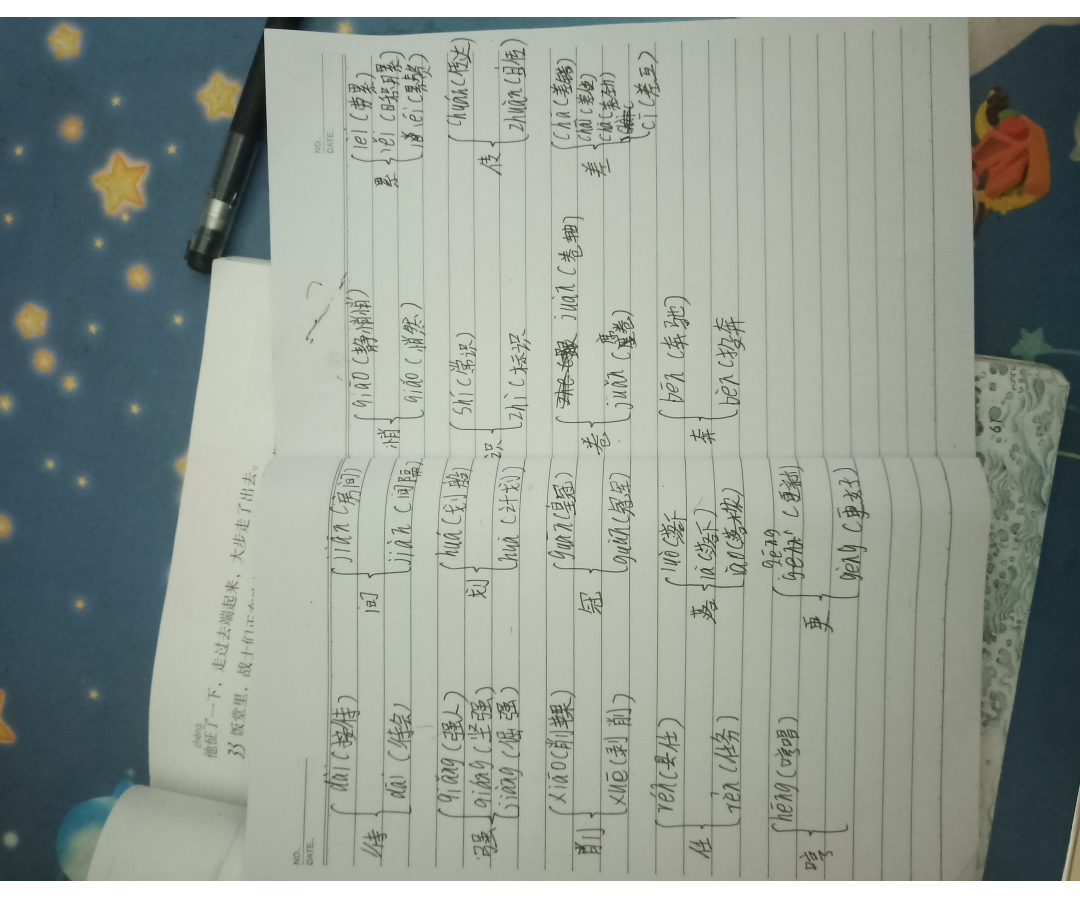 NO.
DATE.
待 dāi (接待)
dài (待会)
间 jiān (房间)
jiàn (间隔)
强 qiǎng (强人)
qiáng (坚强)
jiàng (倔强)
划 huá (划船)
huà (计划)
削 xiāo (削苹果)
xuē (剥削)
冠 guān (皇冠)
guàn (冠军)
任 rén (县任)
rèn (任务)
落 luò (落下
là (落下)
lào (落枕)
哼 hēng (哼唱)
更 gēng (更新)
gèng (更好)
NO.
DATE.
悄 qiāo (静悄悄)
qiǎo (悄然)
累 léi (劳累)
lěi (日积月累)
lěi (累赘)
识 shí (常识)
zhì (标识)
传 chuán (传达)
zhuàn (自传)
卷 juàn (卷轴)
juǎn (星卷)
差 chā (差错)
chāi (差使)
chà (差劲)
cī (差互)
奔 bēn (奔驰)
bèn (投奔)
zhēng
他怔了一下，走过去端起来，大步走了出去。
33 饭堂里，战士们正
61